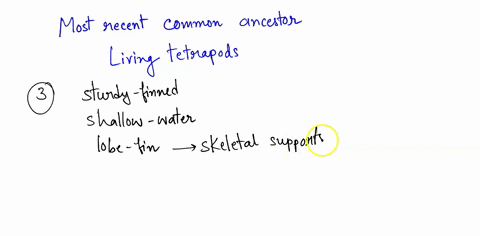 Most recent common ancestor
Living tetrapods
3 sturdy-finned
shallow-water
lobe-fin → skeletal supports